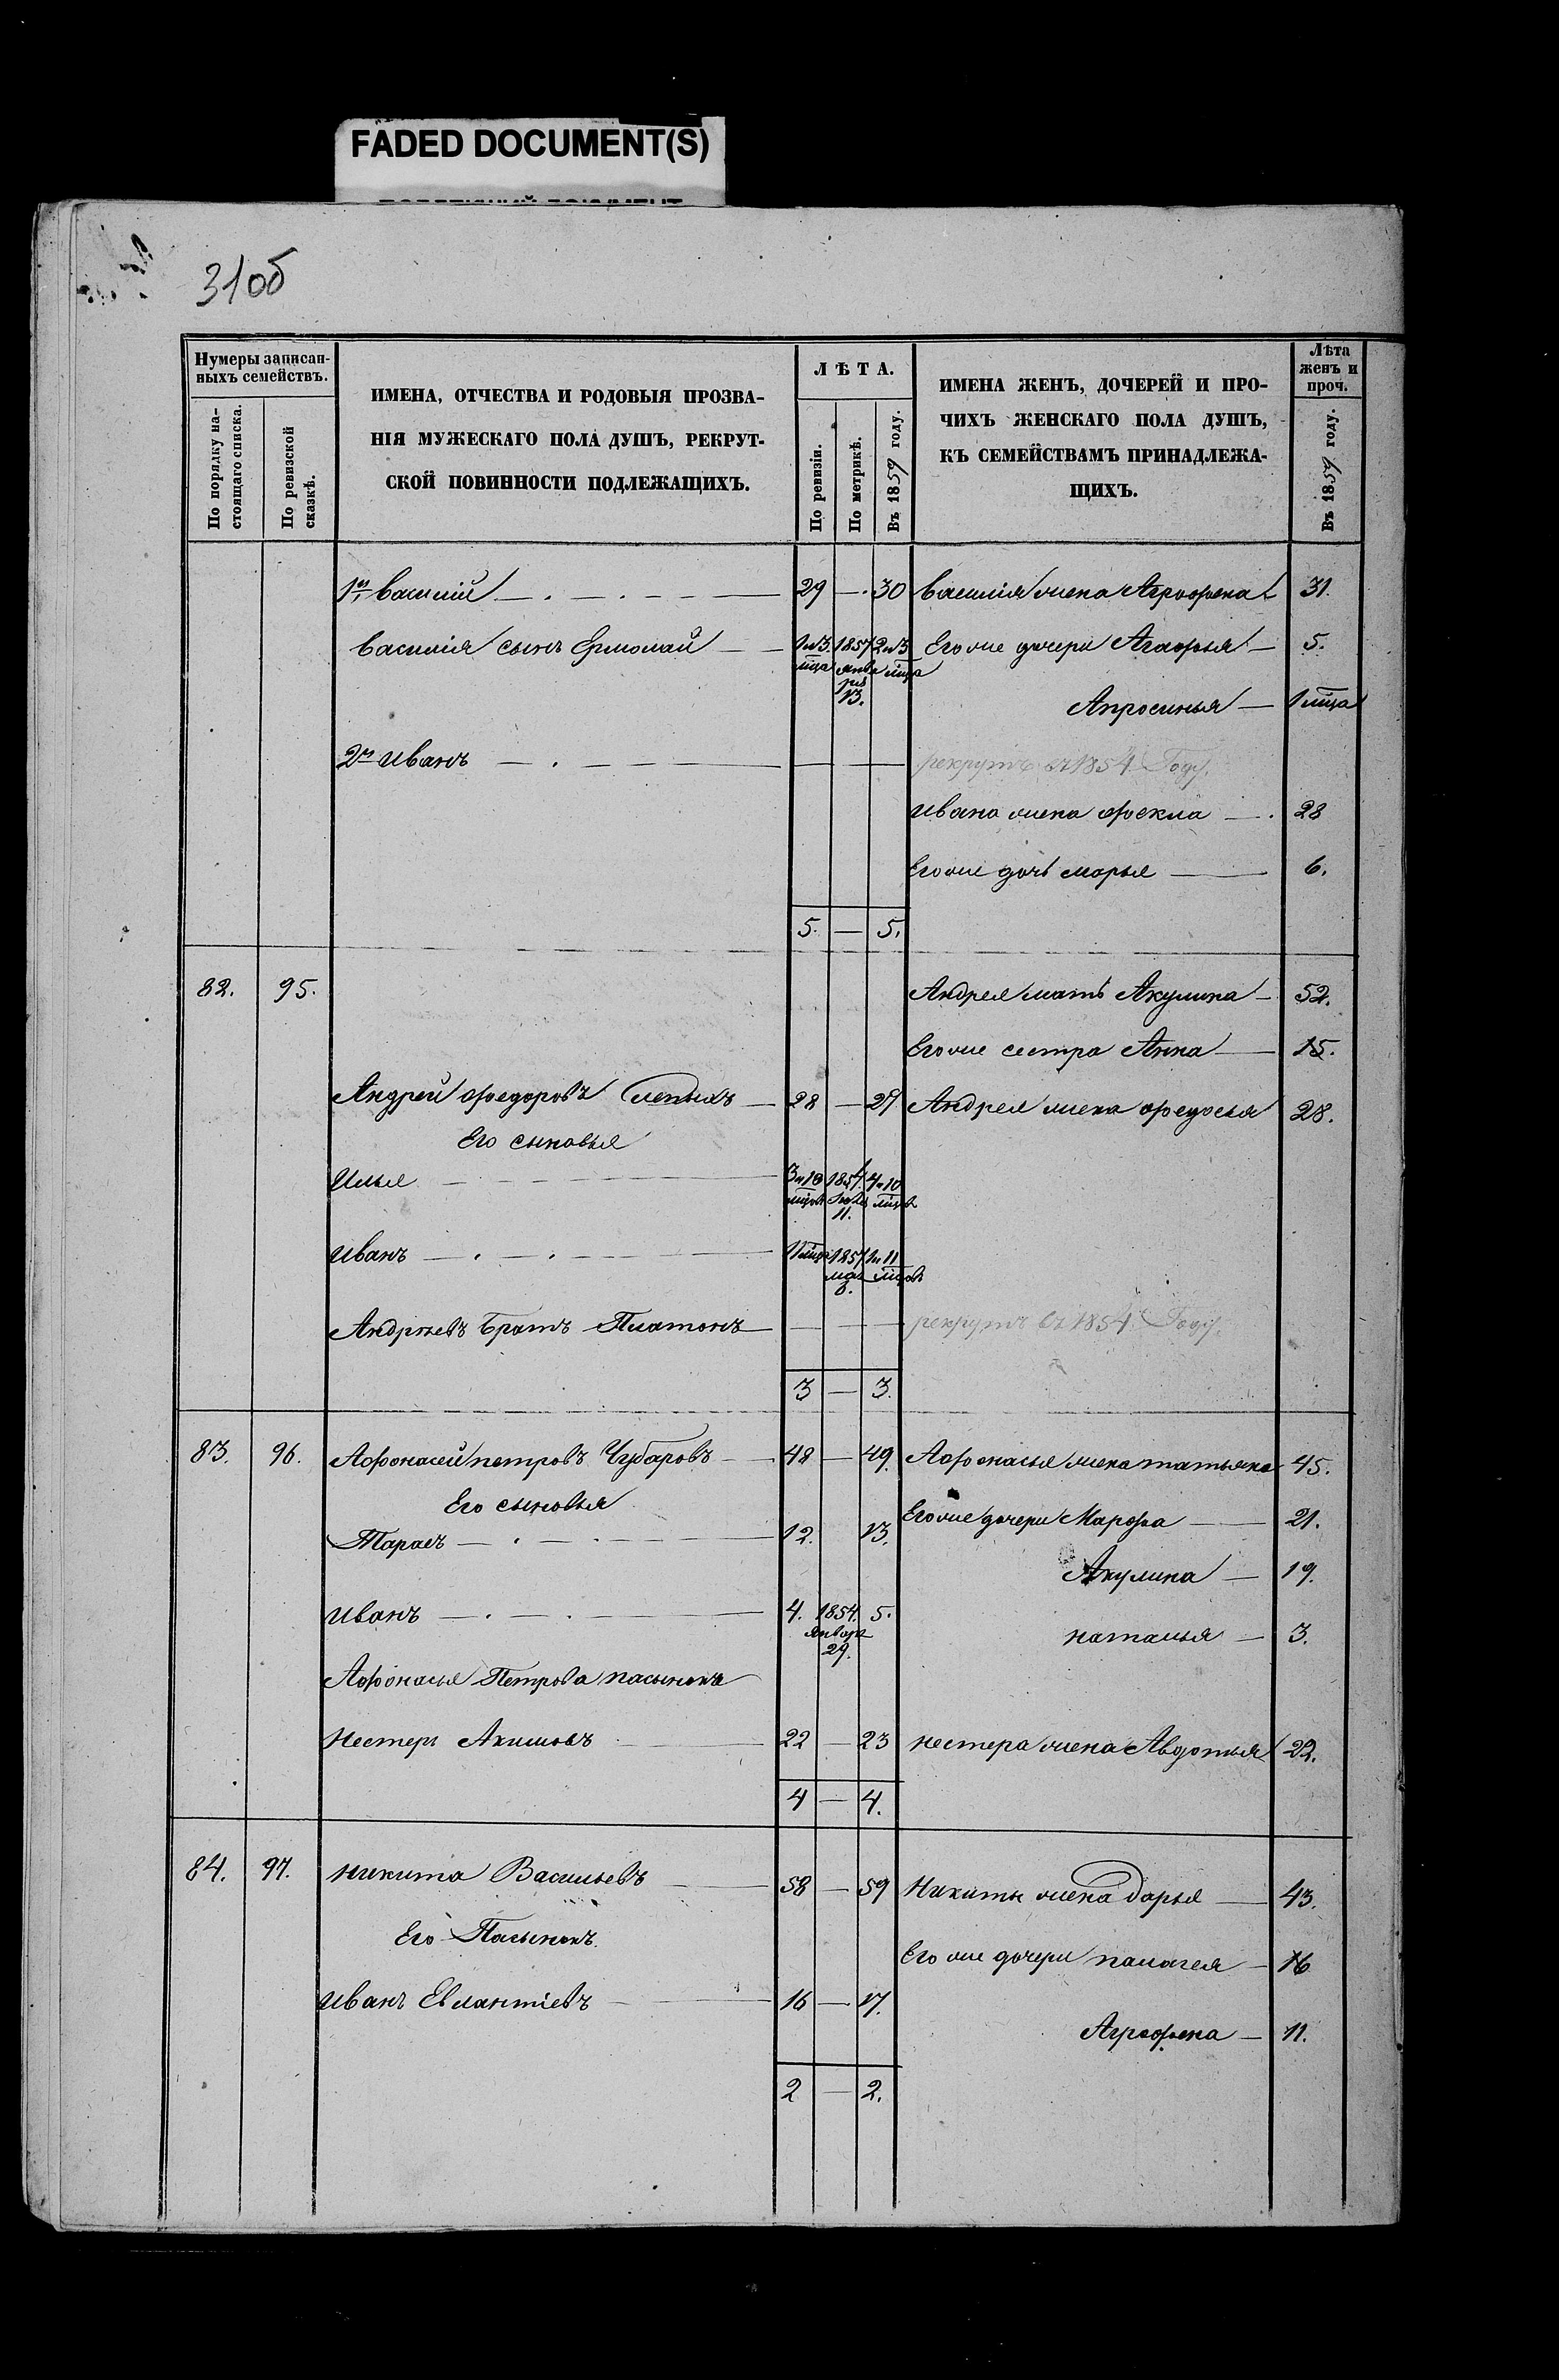 FADED DOCUMENT(S)
31об
Нумеры записан-
ныхъ семействъ.
По порядку на-
стоящаго списка.
По ревизской
сказкѣ.
ИМЕНА, ОТЧЕСТВА И РОДОВЫЯ ПРОЗВА-
НІЯ МУЖЕСКАГО ПОЛА ДУШЪ, РЕКРУТ-
СКОЙ ПОВИННОСТИ ПОДЛЕЖАЩИХЪ.
ЛѢТА.
По ревизіи.
По метрикѣ.
Въ 1859 году.
ИМЕНА ЖЕНЪ, ДОЧЕРЕЙ И ПРО-
ЧИХЪ ЖЕНСКАГО ПОЛА ДУШЪ,
КЪ СЕМЕЙСТВАМЪ ПРИНАДЛЕЖА-
ЩИХЪ.
Лѣта
женъ и
проч.
Въ 1859 году.
1й Василій — 29 — 30 Василія жена Агрофена 31.
Василія сынъ Ермолай — 1 и 3 мца 1857 января 13. 2 и 3 мца Его же дочери Агафья — 5.
Апросинья — 1 мца
2й Иванъ — — — рекрутъ въ 1854 Году.
Ивана жена Фекла — 28
Его же дочь Марья — 6.
5. — 5.
82. 95. Андрея мать Акулина — 52.
Его же сестра Анна — 15.
Андрей Федоровъ Слепыхъ — 28 — 29 Андрея жена Федосья 28.
Его сыновья
Илья — 3 и 10 мцовъ 1854 11. 4 и 10 мцовъ
Иванъ — 11 мцо 1857 8. 1 и 11 мцовъ
Андрѣевъ братъ Платонъ — — — рекрутъ въ 1854 Году.
3 — 3.
83. 96. Афонасей Петровъ Чубаровъ — 48 — 49. Афонасья жена Татьяна 45.
Его сыновья
Его же дочери Марфа — 21.
Тарасъ — 12. 13.
Акулина — 19.
Иванъ — 4. 1854. Января 29. 5.
Наталья — 3.
Афонасья Петрова пасынокъ
Нестеръ Акимовъ — 22 — 23 Нестера жена Авдотья 22.
4 — 4.
84. 97. Никита Васильевъ — 58 — 59 Никиты жена Дарья — 43.
Его Пасынокъ.
Его же дочери Палагея — 16
Иванъ Евлантіевъ — 16 — 17.
Агрофена — 11.
2 — 2.